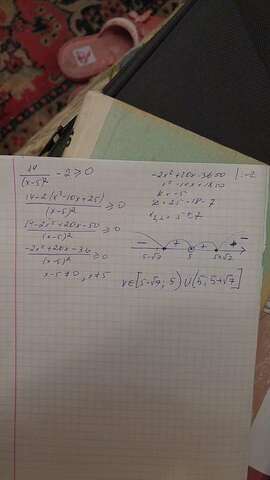 14/(x-5)² - 2 ≥ 0
14-2(x²-10x+25)/(x-5)² ≥ 0
14-2x²+20x-50/(x-5)² ≥ 0
-2x²+20x-36/(x-5)² ≥ 0
x-5≠0, x≠5
-2x²+20x-36=0 |:-2
x²-10x+18=0
k=-5
D=25-18=7
x₁,₂=5±√7
- + + -
5-√7 5 5+√7
x∈[5-√7; 5)∪(5; 5+√7]